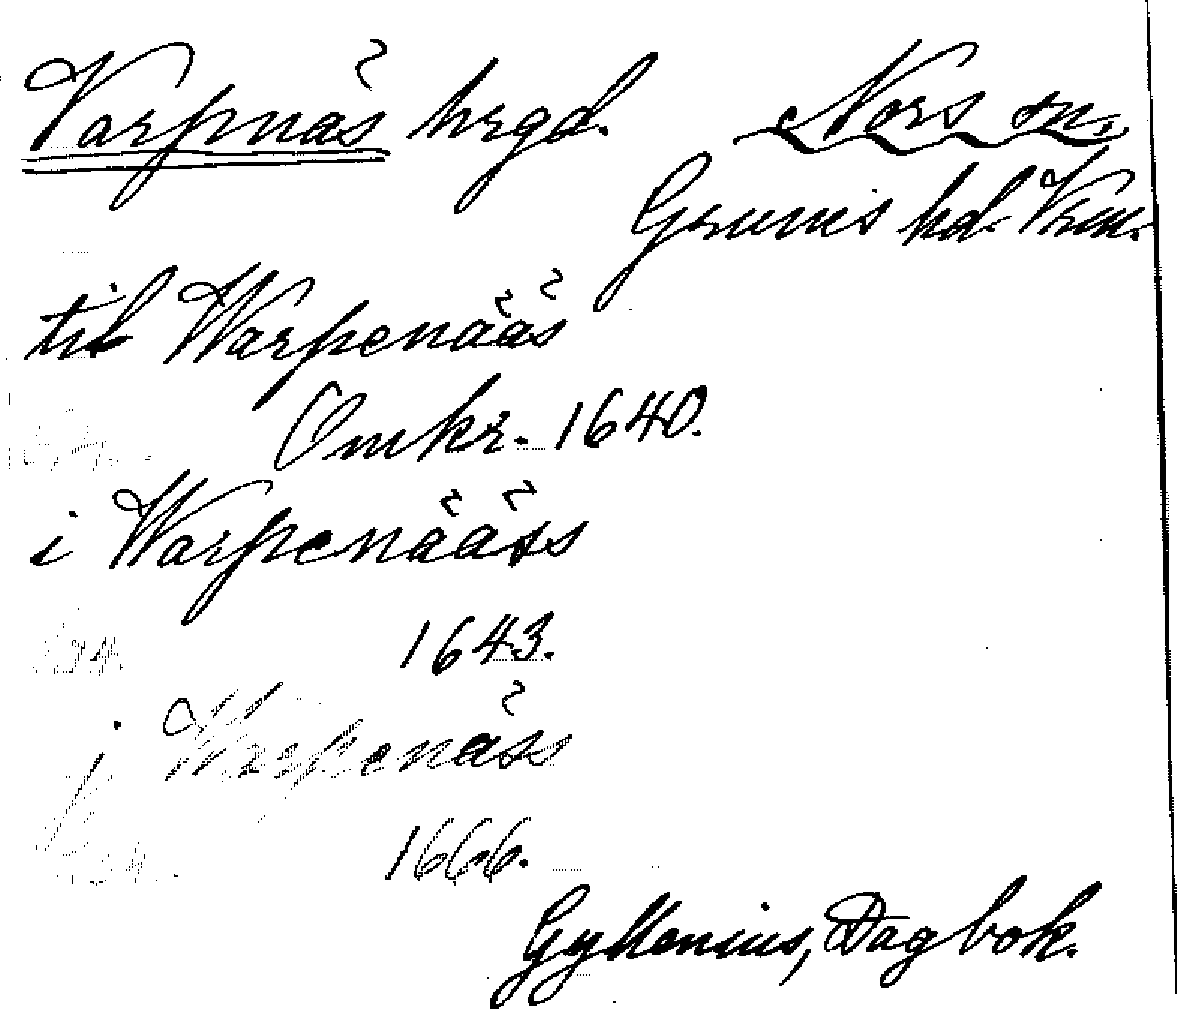 Varpnäs hrgd. Nors sn.
Grums hd. Vrm.
til Warpenääs
Omkr. 1640.
i Warpenääss
1643.
j Warpenäss
1666.
Gyllenius, Dagbok.